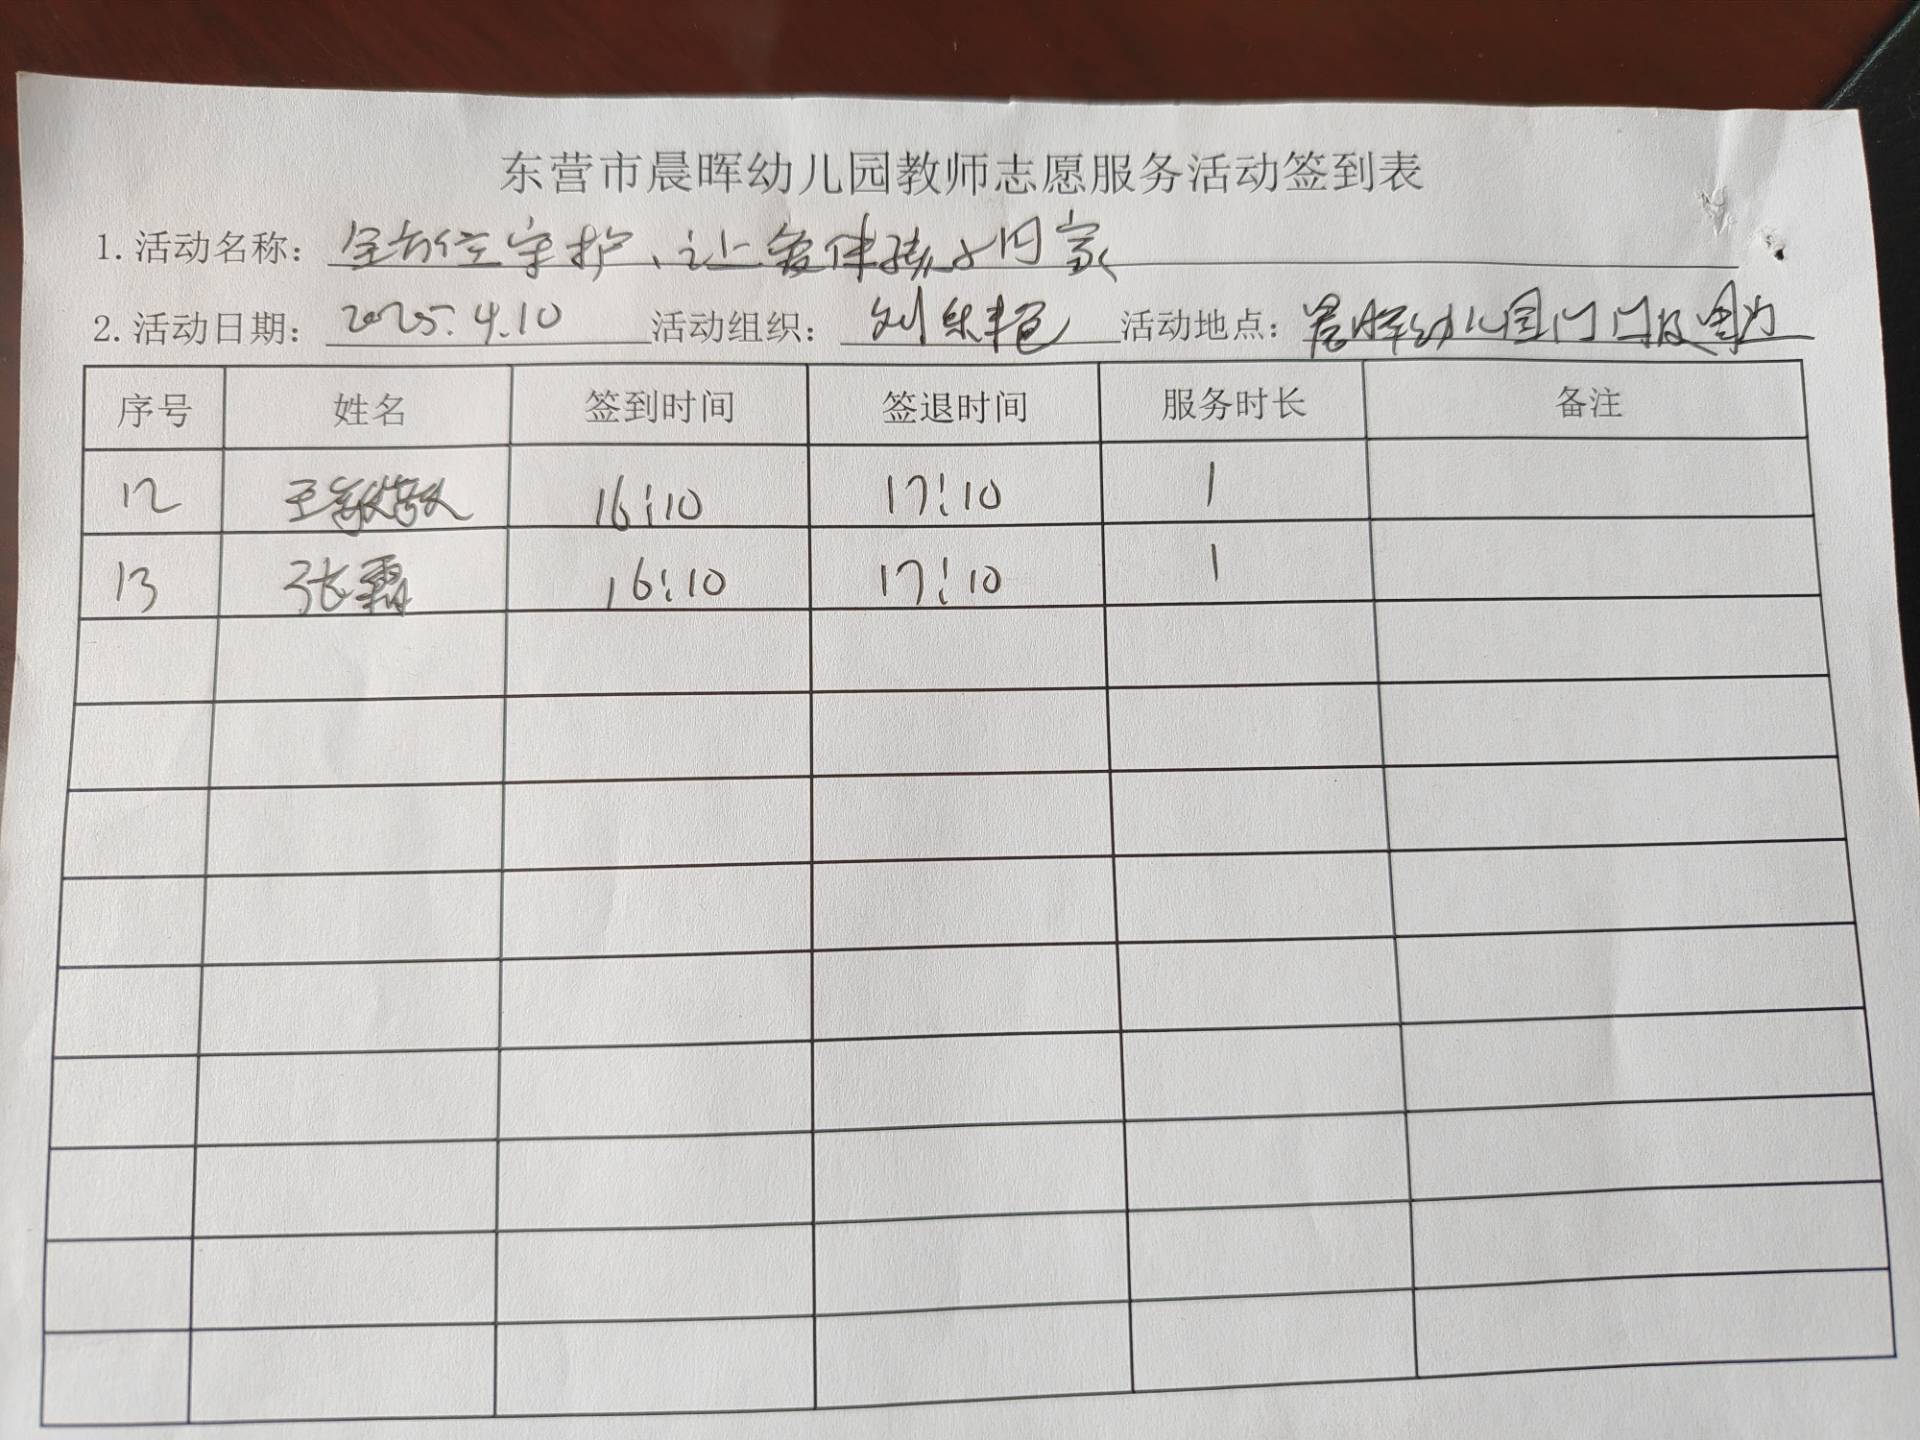 东营市晨晖幼儿园教师志愿服务活动签到表
1.活动名称：全方位守护、让爱伴孩子回家
2.活动日期：2025.4.10 活动组织：刘 艳 活动地点：晨晖幼儿园门口及周边
序号 姓名 签到时间 签退时间 服务时长 备注
12 王敬敬 16:10 17:10 1
13 张霜 16:10 17:10 1